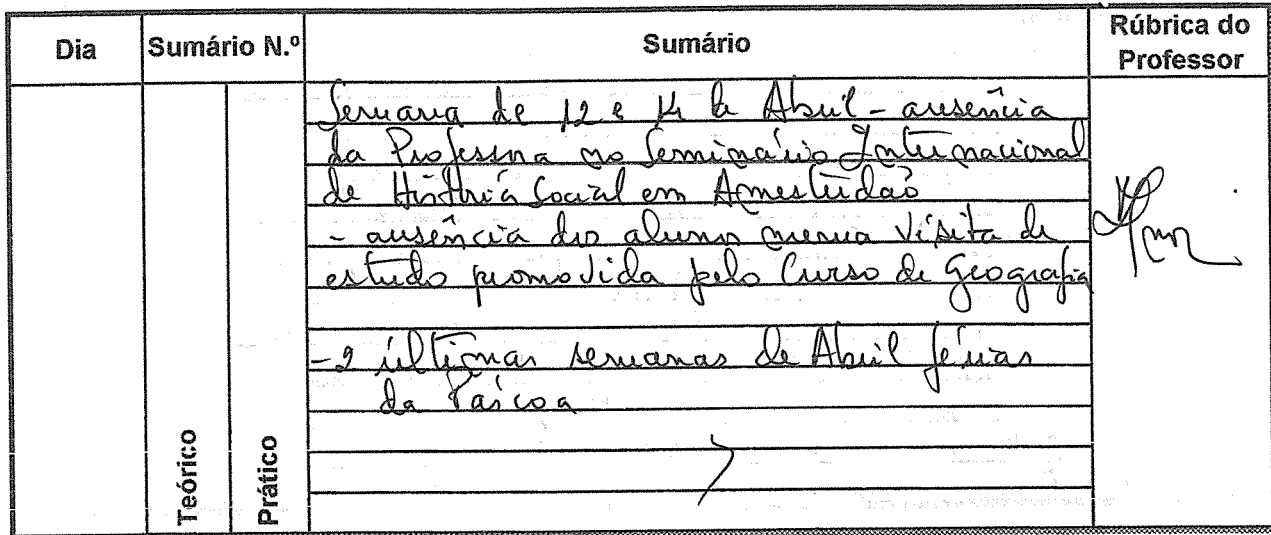 Dia
Sumário N.º
Sumário
Rúbrica do
Professor
Teórico
Prático
Semana de 12 e 14 de Abril - ausência
da Professora no Seminário Internacional
de História Social em Amesterdão
- ausência dos alunos numa visita de
estudo promovida pelo Curso de Geografia
- 2 últimas semanas de Abril férias
da Páscoa